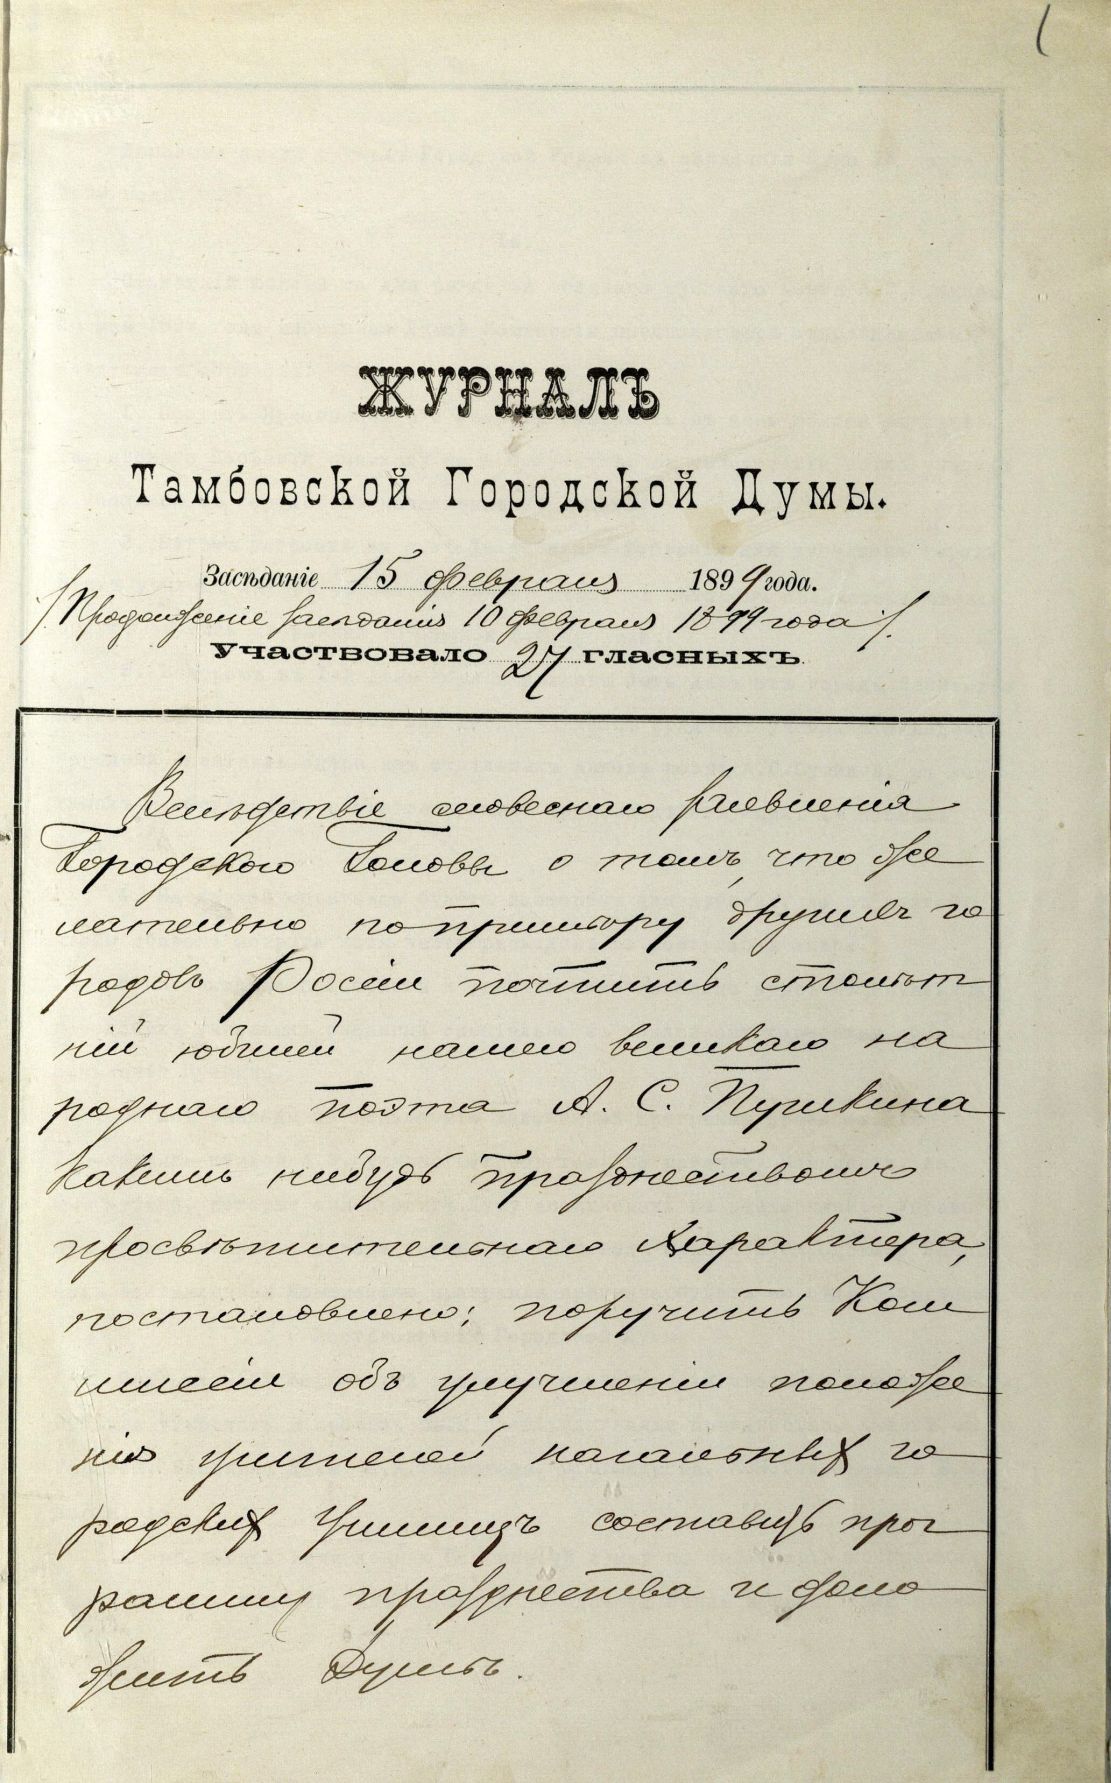 ЖУРНАЛЪ
Тамбовской Городской Думы.
Засѣданіе 15 февраля 1899 года.
/Продолженіе засѣданія 10 февраля 1899 года/.
Участвовало 27 гласныхъ
Вслѣдствіе словеснаго заявленія
Городского Головы о томъ, что же
лательно по примѣру другихъ го
родовъ Россіи почтить столѣт
ній юбилей нашего великаго на
роднаго поэта А. С. Пушкина
какимъ нибудь празднествомъ
просвѣтительнаго характера,
постановлено: поручить Ком
миссіи объ улучшеніи положе
нія учителей начальныхъ го
родскихъ училищъ составить прог
рамму празднества и доло
жить Думѣ.